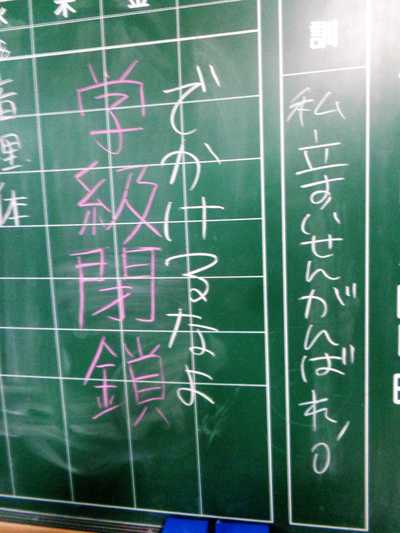 訓
私立すいせんがんばれ!0
でかけるなよ
学級閉鎖
金
木